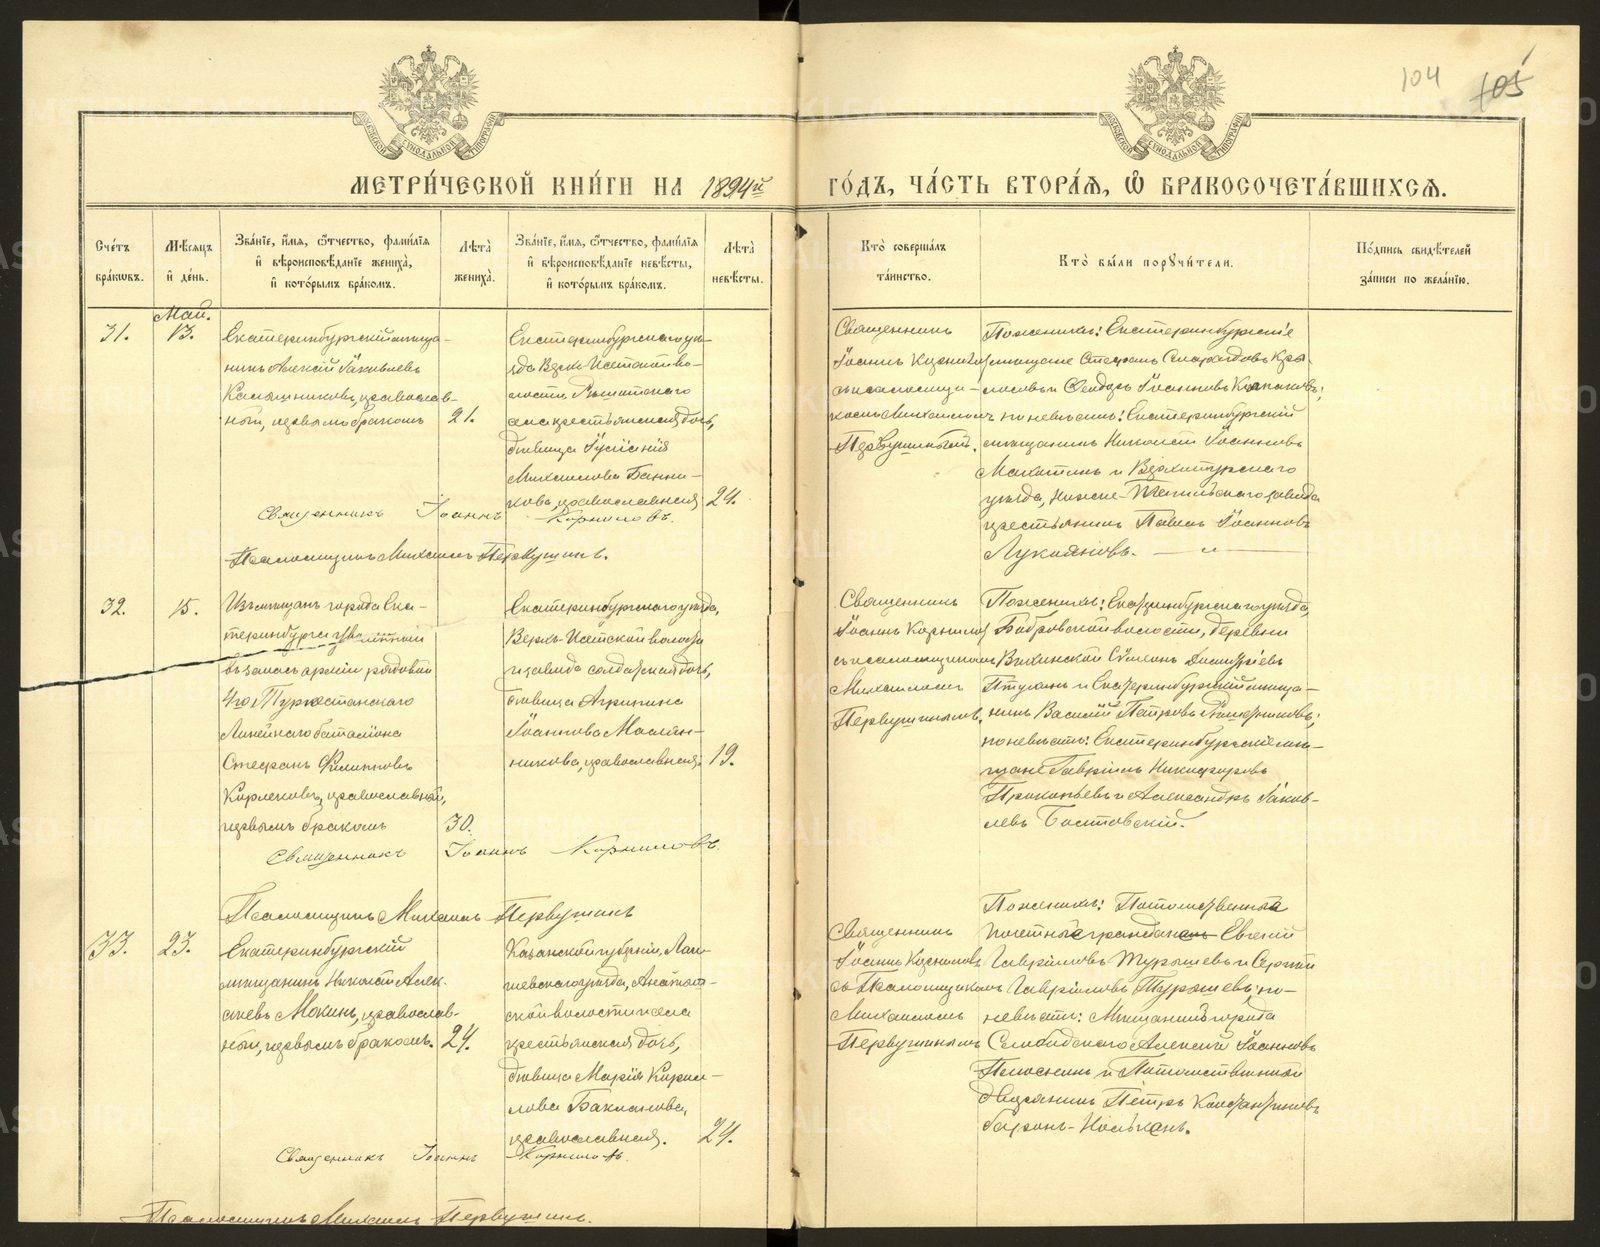 104
105
МЕТРИ́ЧЕСКОЙ КНИ́ГИ НА 1894й ГО́ДЪ, ЧА́СТЬ ВТОРА́Я, Ѡ БРАКОСОЧЕТА́ВШИХСЯ.
Сче́тъ бра́кѡвъ.
Мѣ́сяцъ и҆ де́нь.
Зва́нїе, и҆́мя, ѻ҆́тчество, фами́лїя
и҆ вѣроисповѣ́данїе жениха̀,
и҆ кото́рымъ бра́комъ.
Лѣ́та̀ жениха̀.
Зва́нїе, и҆́мя, ѻ҆́тчество, фами́лїя
и҆ вѣроисповѣ́данїе невѣ́сты,
и҆ кото́рымъ бра́комъ.
Лѣ́та̀ невѣ́сты.
Кто̀ соверша́лъ та́инство.
Кто̀ бы́ли порꙋчи́тели.
По́дпись свидѣ́телей за́писи по жела́нїю.
Май.
31.
13.
Екатеринбургскій мѣща-
нинъ Алексій Іаковлевъ
Калашниковъ, православ-
ный, первымъ бракомъ
21.
Екатеринбургскаго уѣ-
зда Верхъ-Исетской во-
лости,
села крестьянская дочь,
дѣвица
Михаилова Банни-
кова, православная
24.
Священникъ
Іоаннъ Корнилов
съ псаломщи-
комъ Михаиломъ
Первушинымъ.
По женихѣ: Екатеринбургскіе
мѣщане Стефанъ
и Ѳеодоръ Іоанновъ
по невѣстѣ: Екатеринбургскій
мѣщанинъ Николай Іоанновъ
и Верхотурскаго
уѣзда, Нижне-Тагильскаго завода
крестьянинъ Павелъ Іоанновъ
Лукояновъ.
Священникъ Іоаннъ Корниловъ.
Псаломщикъ Михаилъ Первушинъ.
32.
15.
Изъ мѣщанъ города Ека-
теринбурга уволенный
въ запасъ арміи рядовой
4го Туркестанскаго
Линейнаго баталіона
Стефанъ Филипповъ
православный,
первымъ бракомъ
30.
Екатеринбургскаго уѣзда,
Верхъ-Исетской волости
и завода солдатская дочь,
дѣвица Агрипина
Іоаннова Маслян-
никова, православная.
19.
Священникъ
Іоаннъ Корнилов
съ псаломщикомъ
Михаиломъ
Первушинымъ.
По женихѣ: Екатеринбургскаго уѣзда,
Бобровской волости, деревни
Сѵмеонъ
и Екатеринбургскій мѣща-
нинъ Василій Петровъ
по невѣстѣ: Екатеринбургскіе мѣ-
щане Гавріилъ Никифоровъ
Прокопьевъ и Александръ Іаков-
левъ
Священникъ Іоаннъ Корниловъ.
Псаломщикъ Михаилъ Первушинъ
33.
23.
Екатеринбургскій
мѣщанинъ Николай Алек-
сѣевъ Мокинъ, православ-
ный, первымъ бракомъ.
24.
Казанской губерніи, Лаи-
шевскаго уѣзда,
ской волости и села
крестьянская дочь,
дѣвица Марія Кирил-
лова Бакланова,
православная.
24.
Священникъ
Іоаннъ Корниловъ
съ Псаломщикомъ
Михаиломъ
Первушинымъ
По женихѣ: Потомственный
почетный гражданинъ Евгеній
Гавріиловъ Турышевъ и Сергій
Гавріиловъ Турышевъ; по
невѣстѣ: Мѣщанинъ города
Слободскаго Алексій Іоанновъ
и Потомственный
дворянинъ Петръ Константиновъ
Священникъ Іоаннъ Корниловъ.
Псаломщикъ Михаилъ Первушинъ.